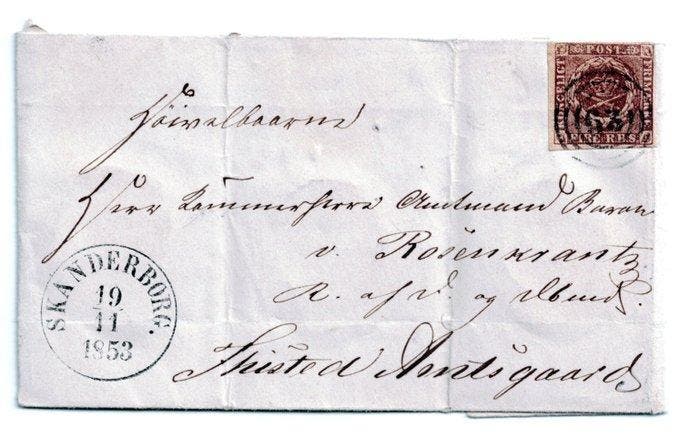 KONGELIGT POST FRIMÆRKE
FIRE R.B.S.
Høivelbaarne
Herr Kammerherre Amtmand Baron
v. Rosenkrantz
R. af D. og Dbmd.
Thisted Amtsgaard
SKANDERBORG.
19
11
1853